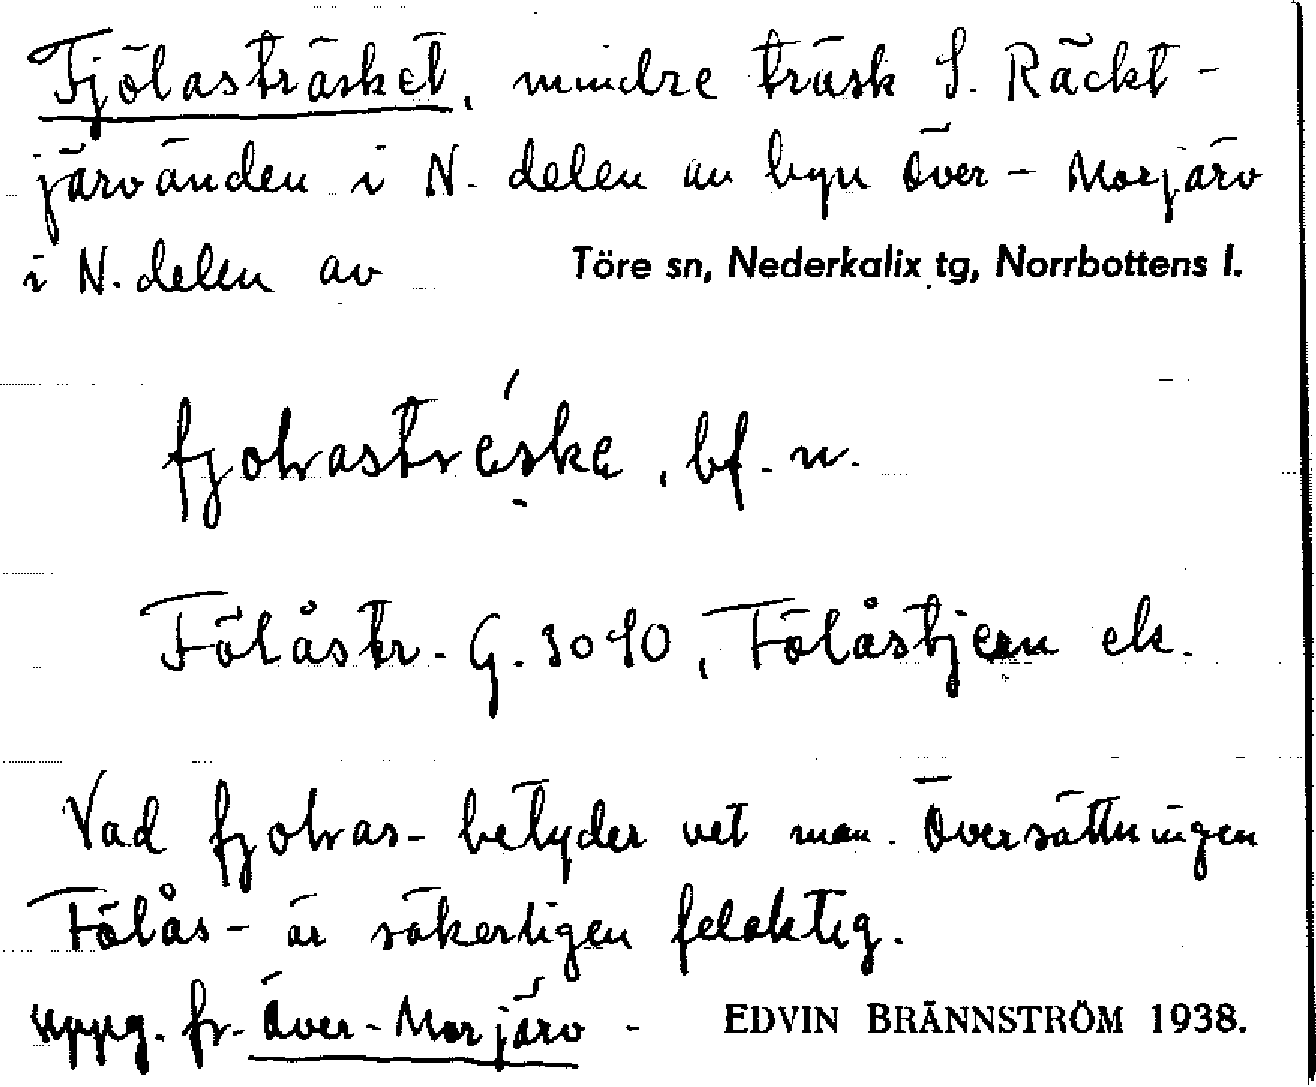 Fjölasträsket, mindre träsk S. Räckt-
järvänden i N. delen av byn Över-Morjärv
i N. delen av Töre sn, Nederkalix tg, Norrbottens l.
fjolvastréske, bf. n.
Fölåstr. G. 3040, Fölåstjern ek.
Vad fjolvas- betyder vet man. Översättningen
Fölås- är säkerligen felaktig.
uppg. fr. Över-Morjärv - EDVIN BRÄNNSTRÖM 1938.